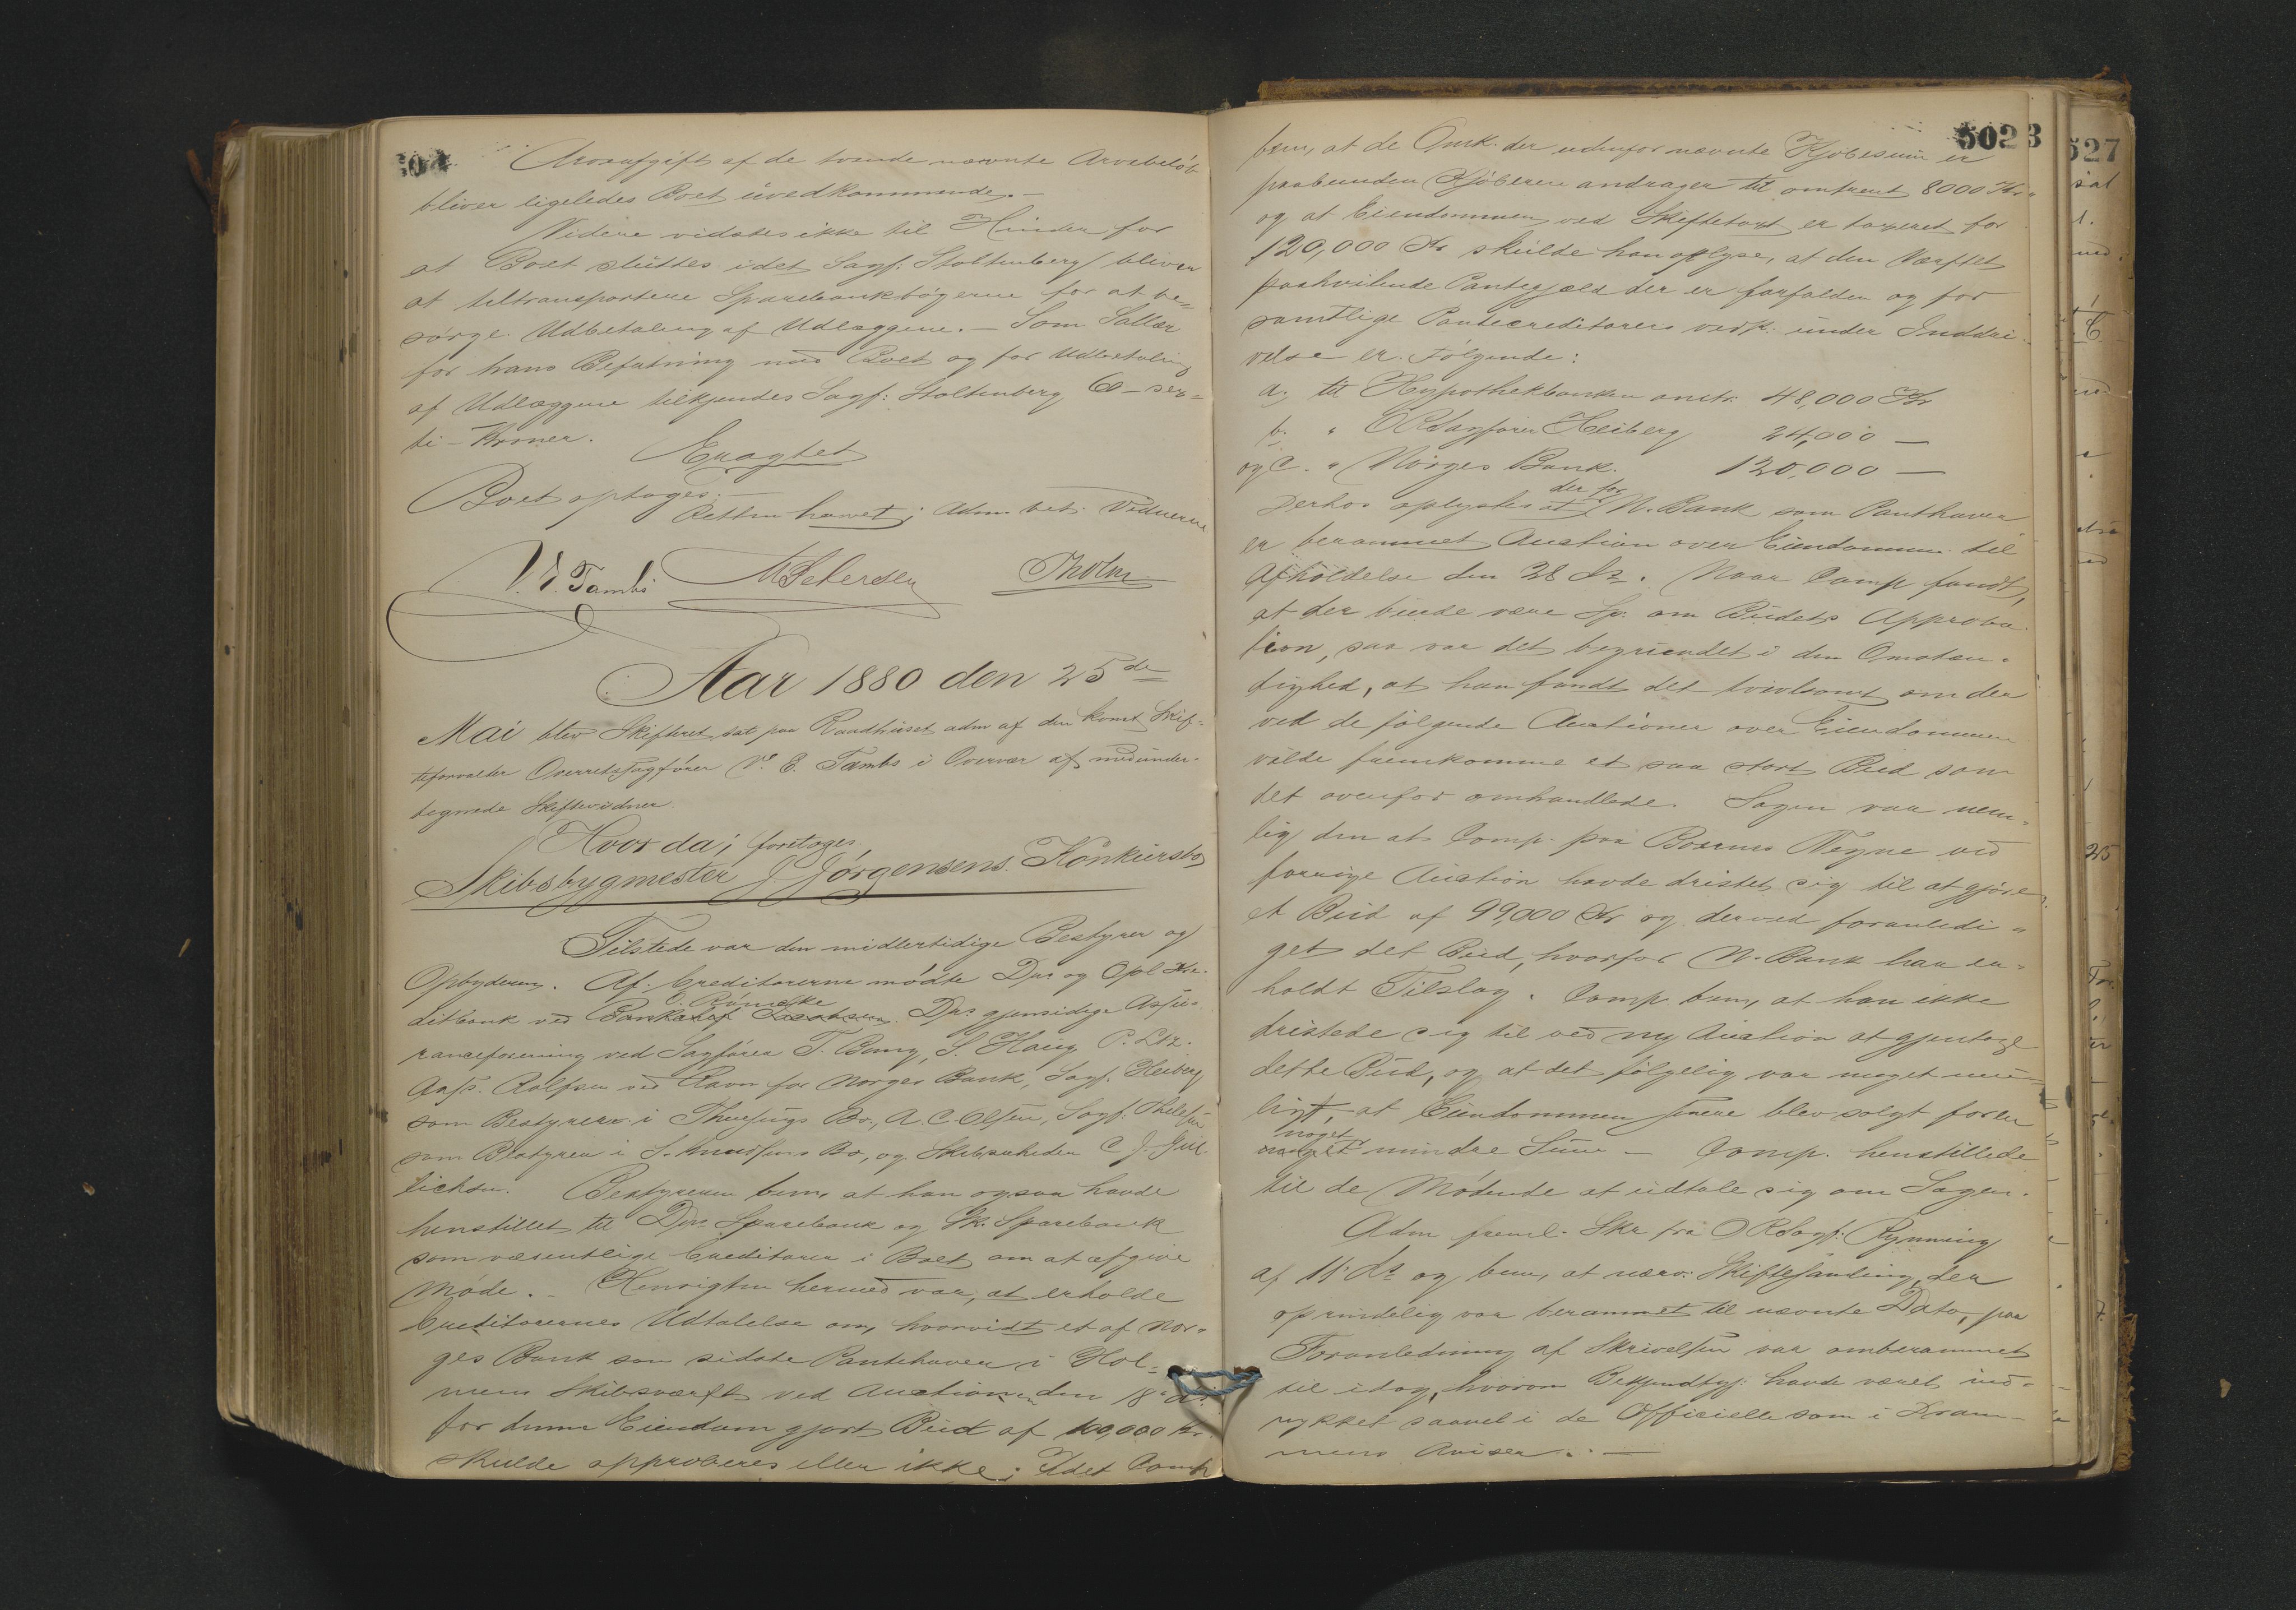 Arveafgift af de tvende nævnte Arvebeløb
bliver ligeledes Boet uvedkommende. –
Videre vidstes ikke til Hinder for
at Boet sluttes idet Sagf: Stoltenberg bliver
at tiltransportere Sparebankbøgerne for at be=
sørge Udbetaling af Udlæggene. – Som Sallær
for hans Befatning med Boet og for Udbetaling
af Udlæggene tilkjendes Sagf: Stoltenberg 60 – sex=
ti – Kroner.
Eragtet
Boet optages; –
Retten hævet; Adm. bet. Vidnerne
V. E. Tambs MPetersen Tholm
Aar 1880 den 25de
Mai blev Skifteret sat paa Raadhuset adm af den konst Skif=
teforvalter Overretssagfører V. E. Tambs i Overvær af medunder=
tegnede Skiftevidner.
Hvorda; foretoges
Skibsbygmester J. Jørgensens Konkursbo
Tilstede var den midlertidige Bestyrer og
Opbyderen. Af Creditorerne mødte Drs og Opl Kre=
ditbank ved Bankchef Jacobsen Drs gjensidige Assu=
ranceforening ved Sagfører T. Bang, S. Haug P. Ltz.
Ands. Rolfsen ved Ravn for Norges Bank, Sagf. Heiberg
som Bestyrer i Bo, A. C. Olsen, Sagf.
som Bestyrer i S. Knudsens Bo, og Skibsreder C J. Gul=
lichsen. Bestyreren bem. at han ogsaa havde
henstillet til Drs. Sparebank og Sk. Sparebank
som væsentlige Creditorer i Boet om at afgive
Møde. – Hensigten hermed var, at erholde
Creditorernes Udtalelse om, hvorvidt et af Nor=
ges Bank som sidste Panthaver i Hol=
mens Skibsværft ved Auctionen den 18 ds
for denne Eiendom gjort Bud af 100,000 Kr.
skulde approberes eller ikke; Idet Comp
5023
527
bem, at de Omk. der udenfor nævnte Kjøbesum er
paabunden Kjøberen andrager til omtrent 8000 Kr.
og at Eiendommen ved Skiftetaxt er taxeret for
120,000 Kr skulde han oplyse, at den Værftet
paahvilende Pantegjæld der er forfalden og for
samtlige Pantecreditorers vedk. under Inddri=
velse er Følgende:
a. til Hypothekbanken omtr. 48,000 Kr
b. " ORSagfører Heiberg 24,000 –
og C. " Norges Bank. 120,000 –
der for
Derhos oplystes at N. Bank som Panthaver
er berammet Auction over Eiendommen til
Afholdelse den 28 ds. Naar Comp fandt,
at der burde være Sp. om Budets Approba=
tion, saa var det begrundet i den Omstæn=
dighed, at han fandt det tvivlsomt om der
ved de følgende Auctioner over Eiendommen
vilde fremkomme et saa stort Bud som
det ovenfor omhandlede. Sagen var nem=
lig den at Comp. paa Boernes Vegne ved
forrige Auction havde dristet sig til at gjøre
et Bud af 99,000 Kr og derved foranledi=
get det Bud, hvorfor N. Bank har er=
holdt Tilslag. Comp bem, at han ikke
dristede sig til ved ny Auction at gjentage
dette Bud, og at det følgelig var meget mu=
ligt, at Eiendommen senere blev solgt for en
noget
meget mindre Sum – Comp. henstillede
til de Mødende at udtale sig om Sagen.
Adm freml. Skr fra ORSagf: Rynning
af 11 ds og bem, at nærv: Skiftesamling, der
oprindelig var berammet til nævnte Dato, paa
Foranledning af Skrivelsen var omberammet
til idag, hvorom Bekjendtgj: havde været ind=
rykket saavel i de Officielle som i Dram=
mens Aviser. –